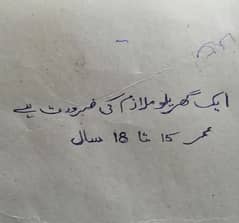 ایک گھریلو ملازم کی ضرورت ہے
عمر 15 تا 18 سال